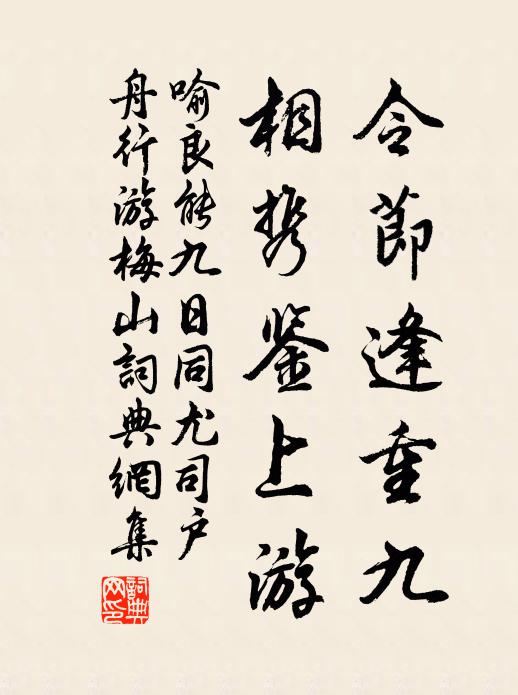 令節逢重九
相携鉴上游
喻良能九日同尤司户
舟行游梅山詞典網集
詞典網印